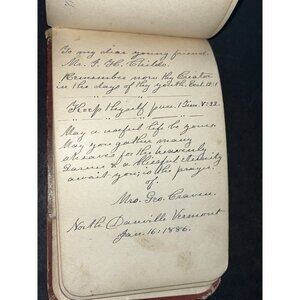 To my dear young friend,
Mr. F. H. Childs.
Remember now thy Creator
in the days of thy youth. Eccl. 12:1
Keep thyself pure. 1 Tim. V:22.
May a useful life be yours,
May you gather many
sheaves for the heavenly
Garner & a blissful eternity
await you, is the prayer
of
Mrs. Geo. Craven.
North Danville Vermont
Jan. 16: 1886.